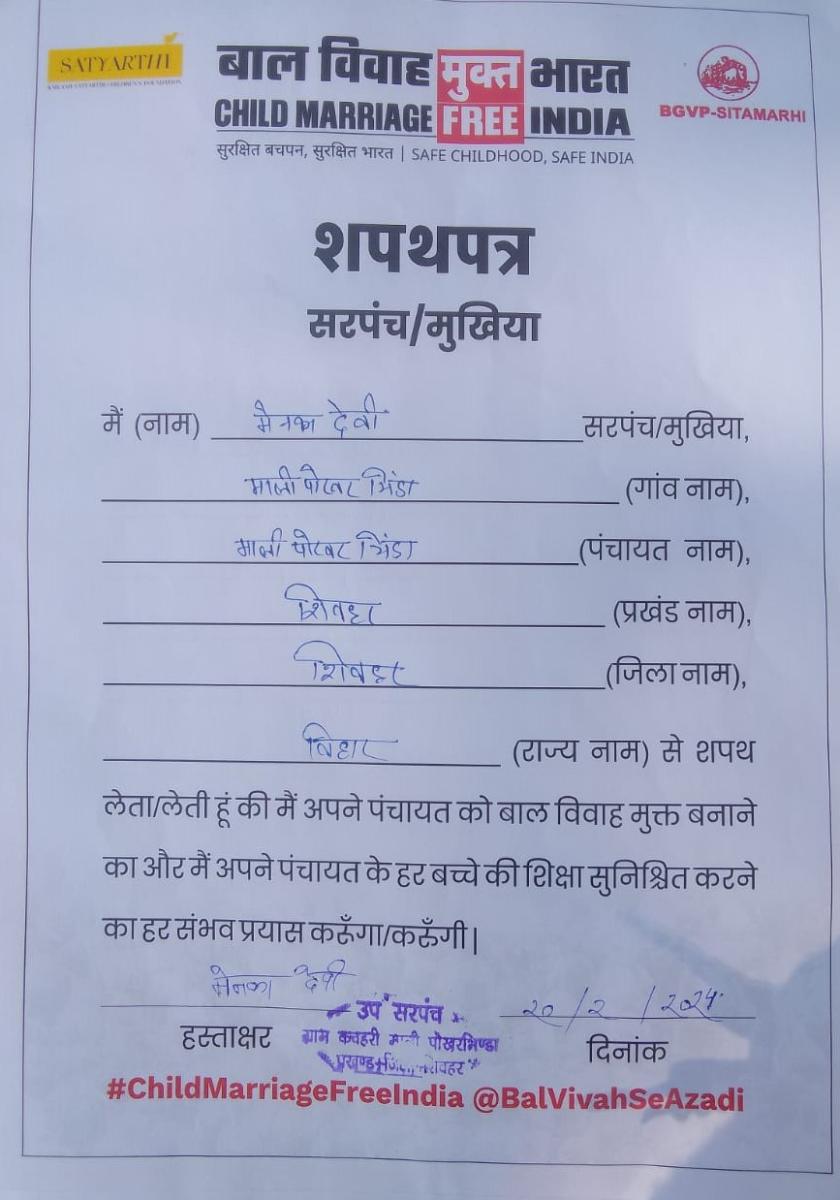 SATYARTHI
KAILASH SATYARTHI CHILDREN'S FOUNDATION
बाल विवाह मुक्त भारत
CHILD MARRIAGE FREE INDIA
सुरक्षित बचपन, सुरक्षित भारत | SAFE CHILDHOOD, SAFE INDIA
BGVP-SITAMARHI
शपथपत्र
सरपंच/मुखिया
मैं (नाम) मेनका देवी सरपंच/मुखिया,
माली पोखर भिंडा (गांव नाम),
माली पोखर भिंडा (पंचायत नाम),
शिवहर (प्रखंड नाम),
शिवहर (जिला नाम),
बिहार (राज्य नाम) से शपथ
लेता/लेती हूं की मैं अपने पंचायत को बाल विवाह मुक्त बनाने
का और मैं अपने पंचायत के हर बच्चे की शिक्षा सुनिश्चित करने
का हर संभव प्रयास करूँगा/करुँगी |
मेनका देवी 20/2/2024
हस्ताक्षर दिनांक
उप सरपंच
ग्राम कचहरी माली पोखरभिण्डा
#ChildMarriageFreeIndia @BalVivahSeAzadi